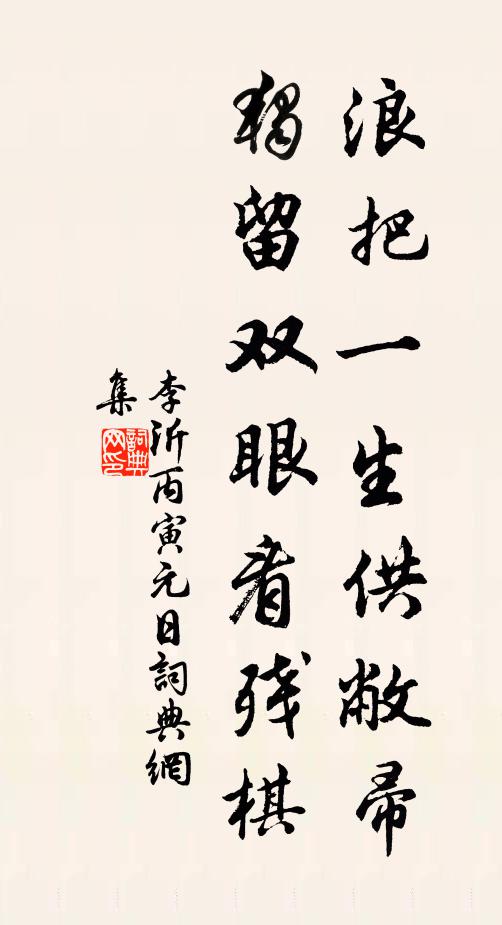 浪把一生供敝帚
独留双眼看残棋
李沂丙寅元日詞典網
集
詞典網印